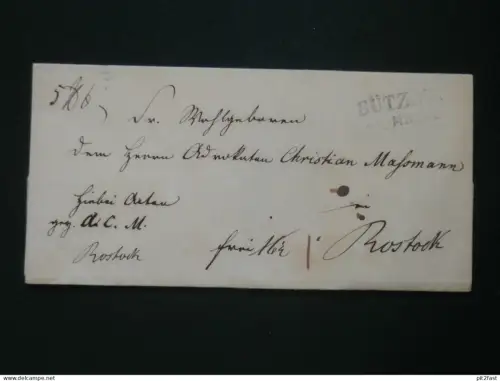 BÜTZ
Sr. Wohlgeboren
dem Herrn Advokaten Christian Maßmann
hiebei Acten
geg. d. C. M.
in
Rostock
frei
Rostock
www.delcampe.net
pit2fast